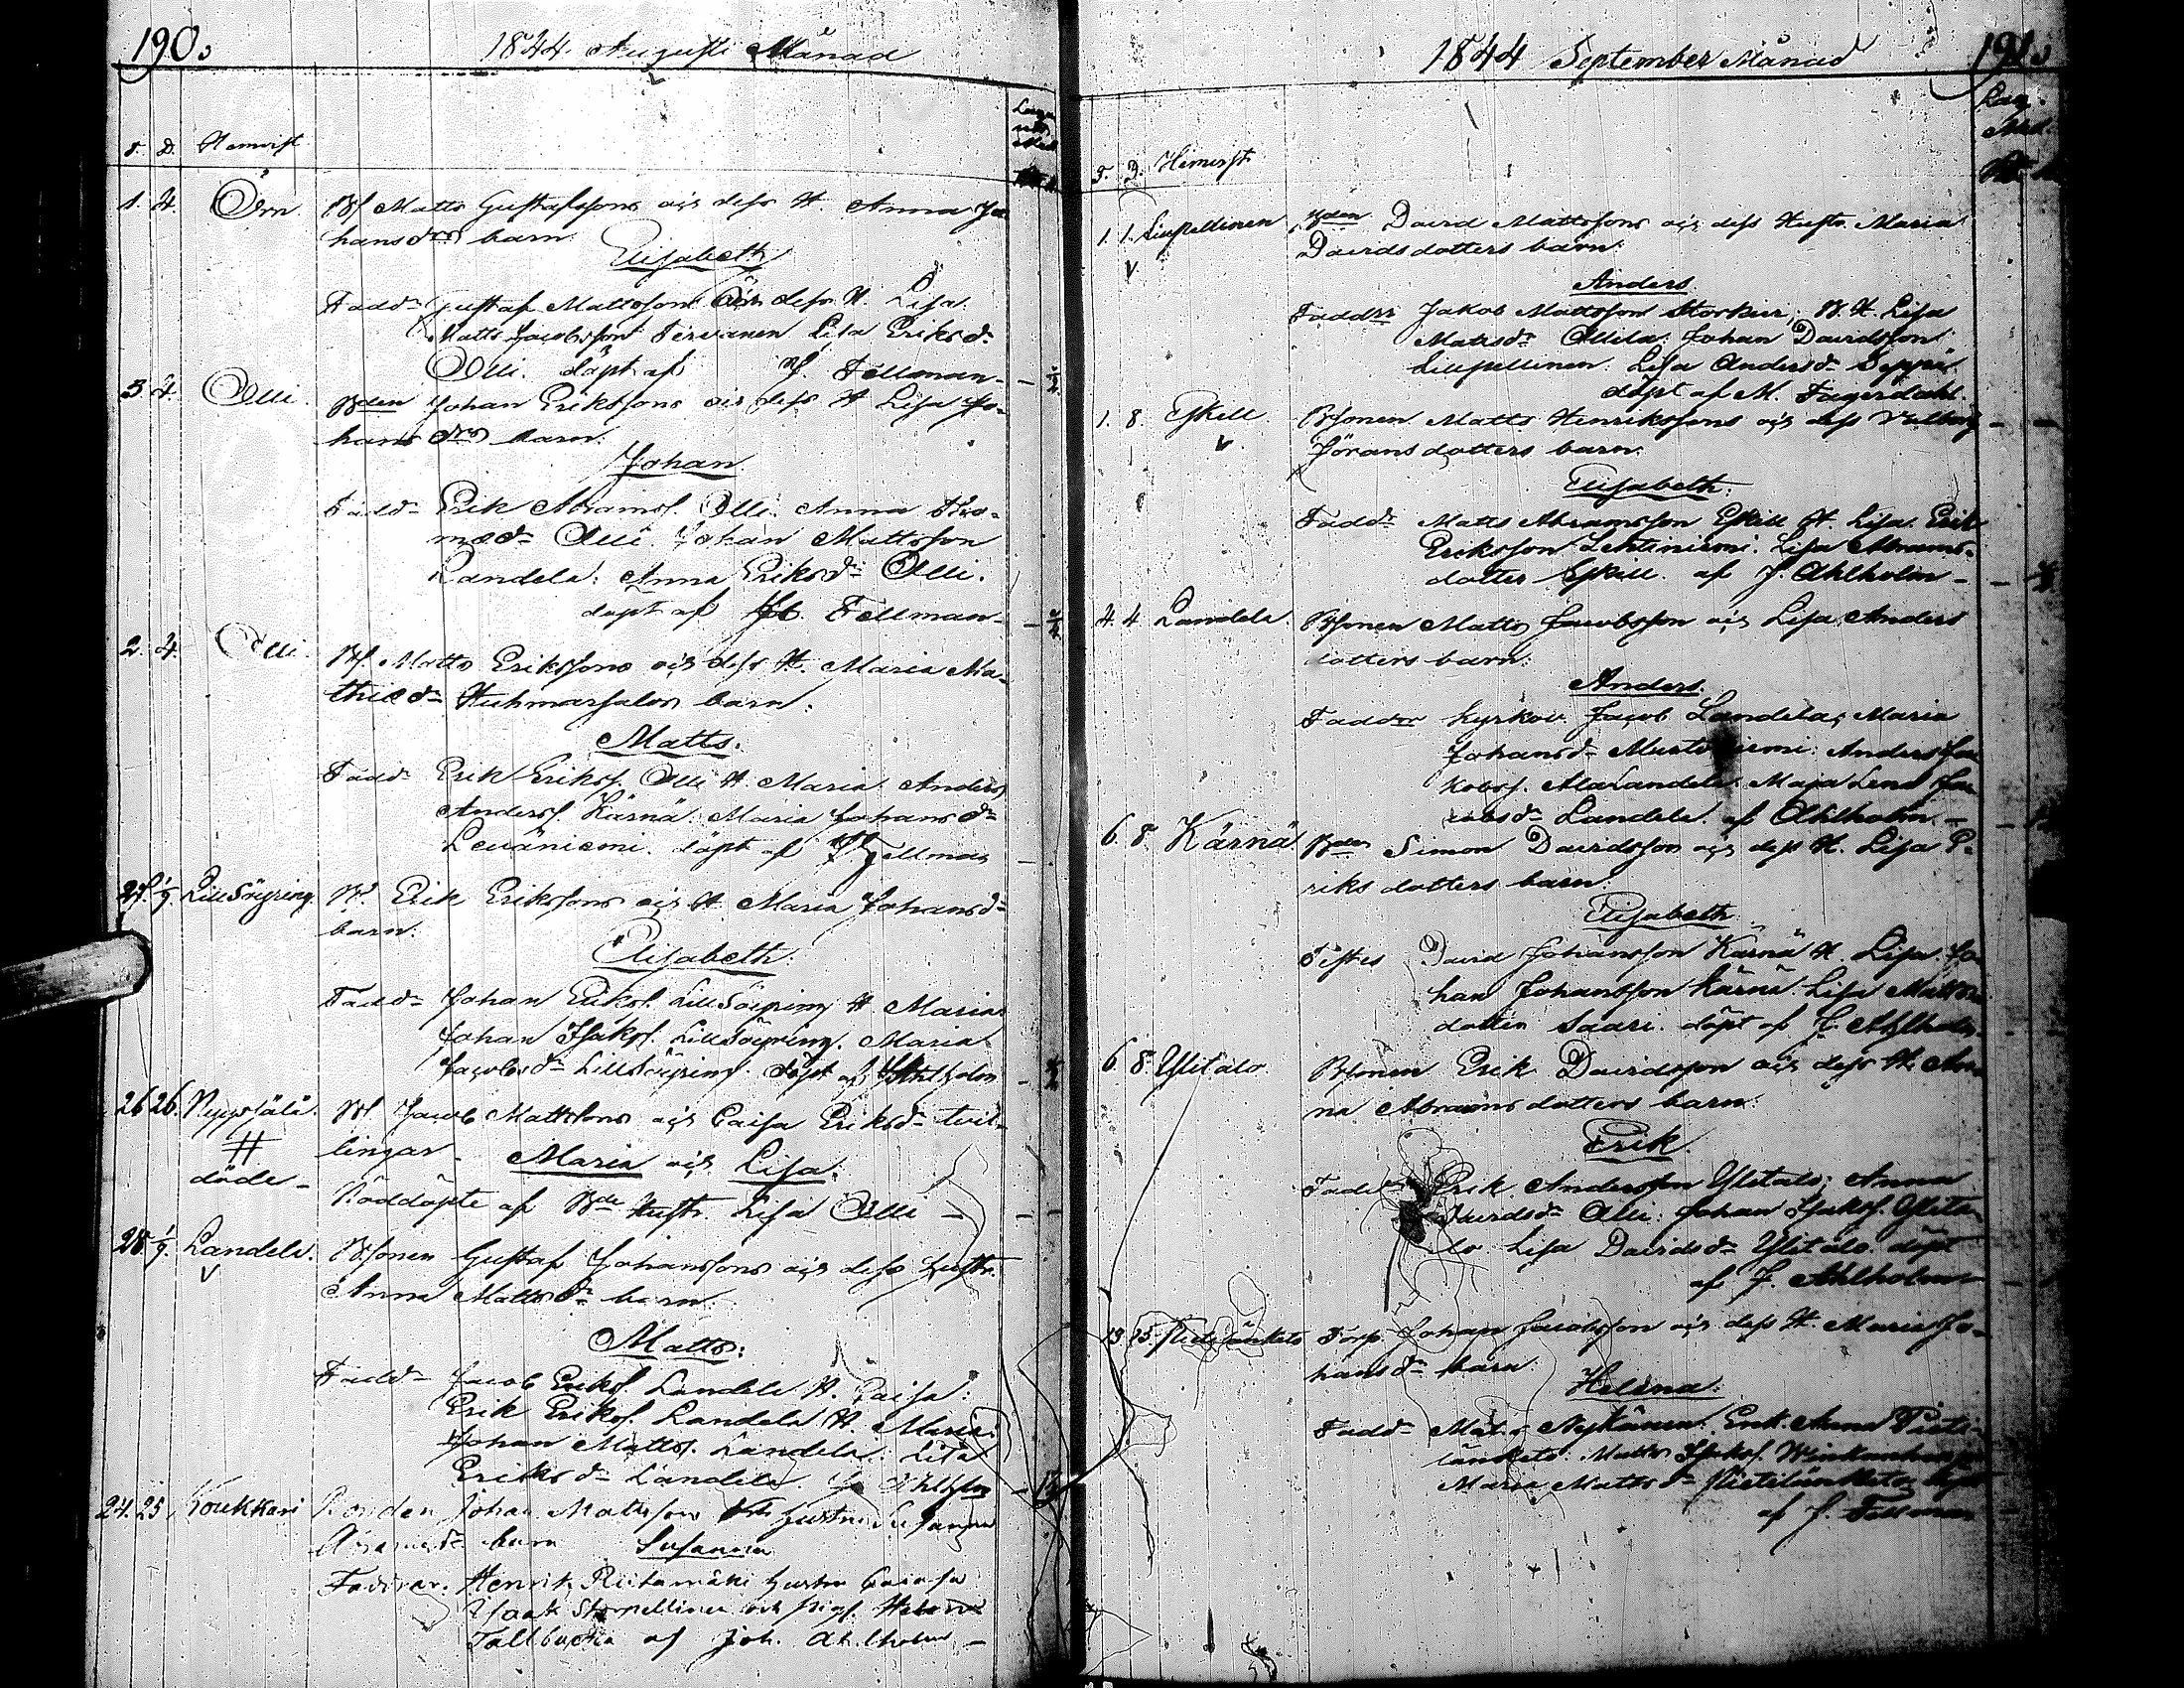 190.
1844. Augusti Månad
F. D. Hemvist
1. 4. Örn. Bs. Matts Gustafssons och dess H. Anna Jo-
hansdrs barn.
Elisabeth
Fadd. Gustaf Mattsson Örn dess H. Lisa.
Matts Jacobsson Tervanen Lisa Eriksdr
Olli. döpt af Fellman
3. 4. Olli. Bden Johan Erikssons och dess H Lisa Jo-
hansdrs barn.
Johan.
Fadd. Erik Abramss. Olli. Anna
Olli. Johan Mattsson
Landela. Anna Eriksdr Olli.
döpt af Fellman
2. 4. Olli. Bs. Matts Erikssons och dess H. Maria Ma-
thiedr Huhmarsalos barn.
Matts.
Fadd. Erik Erikss. Olli H. Maria Anders
Anderss. Kärnä. Maria Johansdr
Leväniemi. döpt af Fellman
1/9. Lill Söyring. B. Erik Erikssons och H. Maria Johansdr
barn.
Elisabeth.
Fadd. Johan Erikss. Lill Söyring H. Maria
Johan Isaks. Lill Söyring. Maria
Jacobsdr Lill Söyring. döpt af Ahlholm
26 26. Bs Jacob Mattssons och Caisa Eriksdr tvil-
# lingar. Maria och Lisa.
döde Nöddöpte af Bde Hustr. Lisa Olli
28 1/9. Landela. Bsonen Gustaf Johanssons och dess hustr.
v Anna Mattsdr barn.
Matts.
Fadd. Jacob Erikss. Landela H. Caisa.
Erik Erikss. Landela H. Maria.
Johan Matts. Landela. Lisa
Eriksdr Landela. J. Ahlholm
24. 25 Koukkari Bonden Johan Mattsson och hustru Susanna
Abramsdr barn Susanna
Faddrar. Henrik Riitamäki hustru Caisa
Isaak Storpellinen och pig.
Tallbacka af Joh. Ahlholm
1844 September Månad
191.
F. D. Hemvist
1. 1. Lillpellinen Bden David Mattssons och dess Hustr. Maria
v Davidsdotters barn.
Anders.
Faddrr Jakob Mattsson Storkur, B. H. Lisa
Matsdr Ollila. Johan Davidsson
Lillpellinen. Lisa Andersdr Seppä
döpt af M. Fagerdahl.
1. 8. Eskill Bsonen Matts Henrikssons och dess Valborg
v Jöransdotters barn.
Elisabeth.
Faddr Matts Abramsson Eskill H. Lisa. Erik
Eriksson Lehtiniemi. Lisa Abrams-
dotter Eskill. af J. Ahlholm
4. 4 Landela. Bsonen Matts Jacobsson och Lisa Anders
dotters barn.
Anders.
Faddrr Kyrkov. Jacob Landela, Maria
Johansdr Anders Ja
kobss. Landela. Maja Lena Ja
cobsdr Landela. af Ahlholm
6. 8. Kärnä Bden Simon Davidsson och dess H. Lisa E-
riks dotters barn.
Elisabeth
Testes David Johansson Kärnä H. Lisa. Jo
han Johansson Kärnä. Lisa Matts
dotter Saari. döpt af J. Ahlholm
6. 8. Ylitalo. Bsonen Erik Davidsson och dess H. An-
na Abramsdotters barn.
Erik.
Faddr Erik Andersson Ylitalo, Anna
Davidsdr Olli. Johan Isaks. Ylita
lo Lisa Davidsdr Ylitalo. döpt
af J. Ahlholm
13 15. Torp. Johan Jacobsson och dess H. Maria Jo-
hansdr barn
Helena.
Fadd. Mat. Nykänen. Enk. Anna Pieti-
länketo. Matts Isaks.
Maria Mattsdr Pietilänketo döpt
af J. Fellman